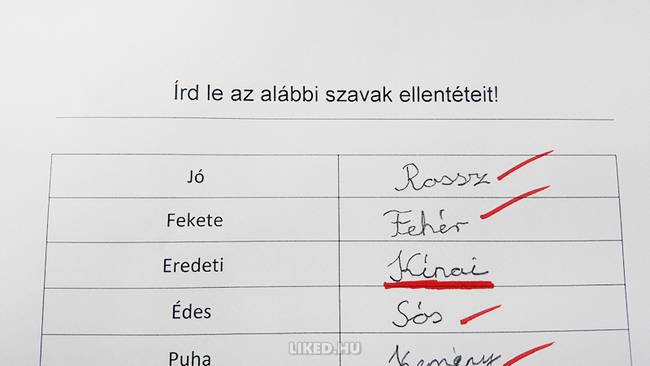 Írd le az alábbi szavak ellentéteit!
Jó Rossz
Fekete Fehér
Eredeti Kínai
Édes Sós
Puha Kemény
LIKED.HU